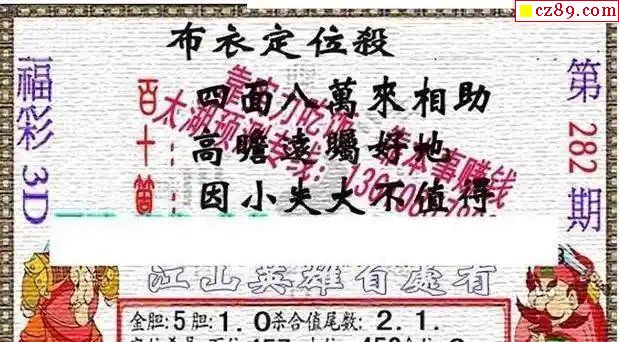 cz89.com
布衣定位殺
福彩3D
第282期
百:四面八萬來相助
十:高瞻遠矚好地
個:因小失大不值得
靠实力吃饭 靠本事赚钱
江山英雄自處有
金胆:5胆:1.0杀合值尾数:2.1.